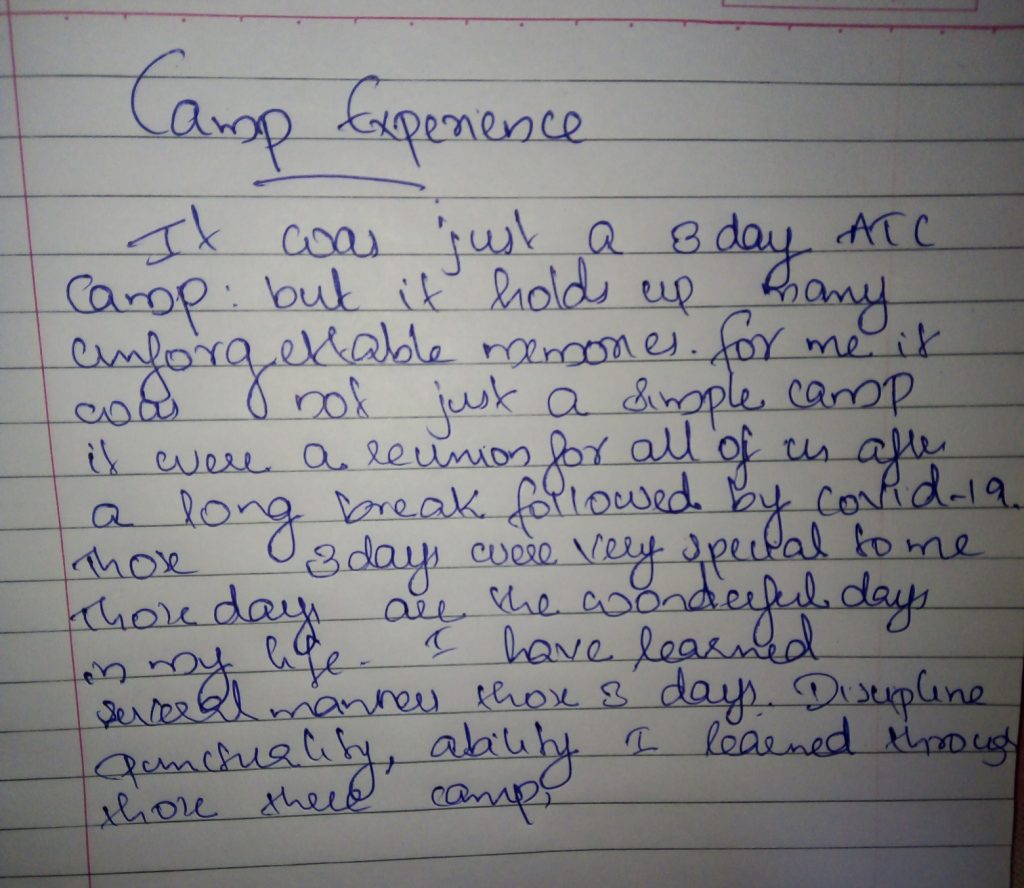 Camp Experience
It was just a 3 day ATC
Camp: but it holds up many
unforgettable memories. for me it
was not just a simple camp
it were a reunion for all of us after
a long break followed by covid-19.
Those 3 days were very special to me
those days are the wonderful days
in my life. I have learned
several manners those 3 days. Discipline
Punctuality, ability I learned through
those there camp,